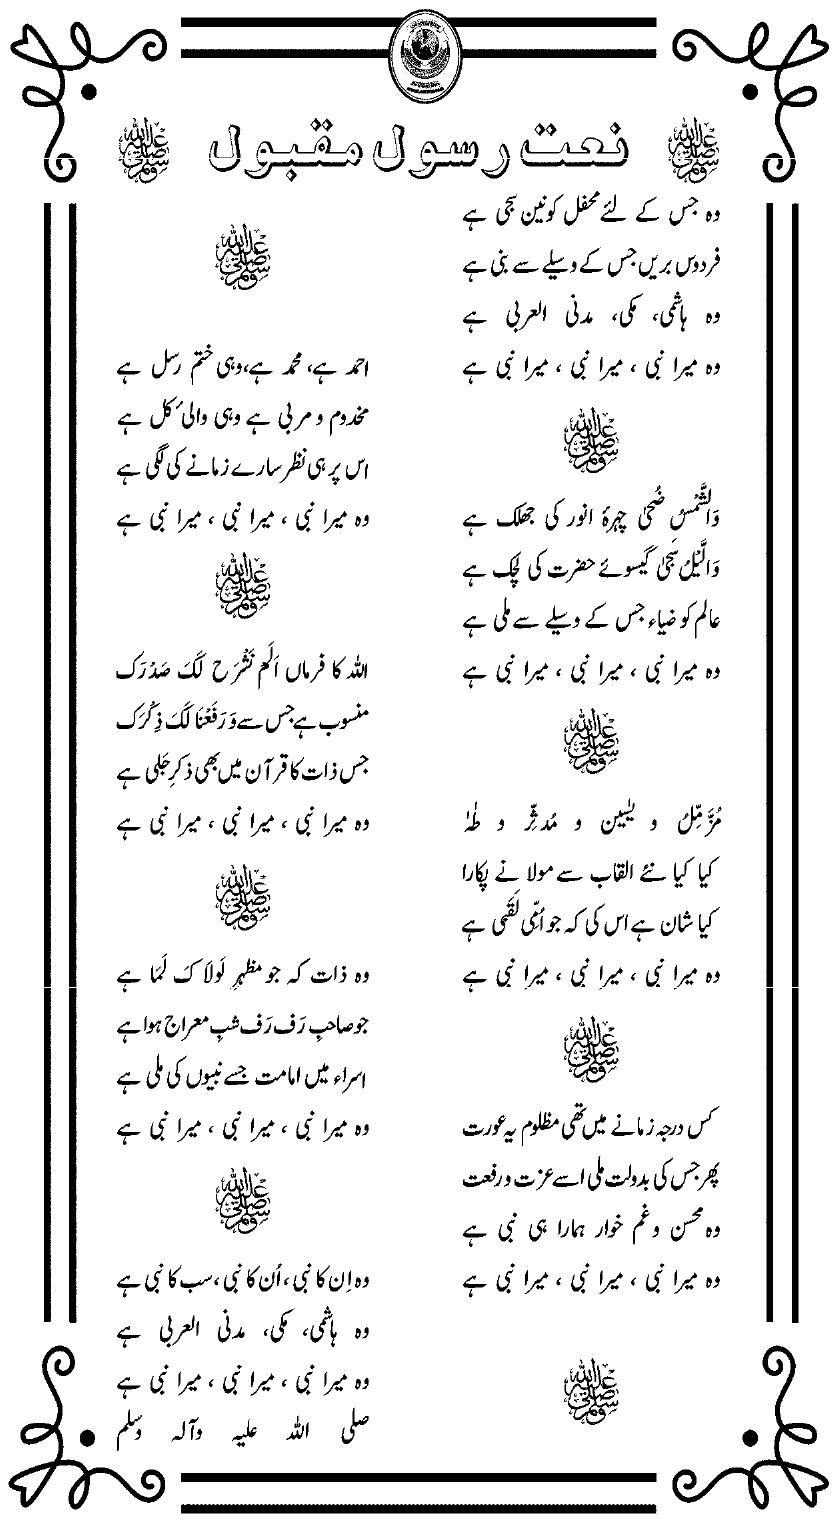 نعت رسول مقبول
صلى الله عليه وسلم
وہ جس کے لئے محفل کونین سجی ہے
فردوس بریں جس کے وسیلے سے بنی ہے
وہ ہاشمی، مکی، مدنی العربی ہے
وہ میرا نبی ، میرا نبی ، میرا نبی ہے
صلى الله عليه وسلم
وَالشَّمْسُ ضُحیٰ چہرۂ انور کی جھلک ہے
وَالَّیلُ سَجیٰ گیسوئے حضرت کی لچک ہے
عالم کو ضیاء جس کے وسیلے سے ملی ہے
وہ میرا نبی ، میرا نبی ، میرا نبی ہے
صلى الله عليه وسلم
مُزَّمِّلُ و یٰسین و مُدثِّر و طٰہٰ
کیا کیا نئے القاب سے مولا نے پکارا
کیا شان ہے اس کی کہ جو اُمِّی لَقَبی ہے
وہ میرا نبی ، میرا نبی ، میرا نبی ہے
صلى الله عليه وسلم
کس درجہ زمانے میں تھی مظلوم یہ عورت
پھر جس کی بدولت ملی اسے عزت و رفعت
وہ محسن و غم خوار ہمارا ہی نبی ہے
وہ میرا نبی ، میرا نبی ، میرا نبی ہے
صلى الله عليه وسلم
صلى الله عليه وسلم
احمد ہے، محمد ہے، وہی ختم رسل ہے
مخدوم و مربی ہے وہی والیٔ کل ہے
اس پر ہی نظر سارے زمانے کی لگی ہے
وہ میرا نبی ، میرا نبی ، میرا نبی ہے
صلى الله عليه وسلم
اللہ کا فرماں اَلَم نَشْرَح لَکَ صَدْرَک
منسوب ہے جس سے وَرَفَعْنَا لَکَ ذِکْرَک
جس ذات کا قرآن میں بھی ذکرِ جَلی ہے
وہ میرا نبی ، میرا نبی ، میرا نبی ہے
صلى الله عليه وسلم
وہ ذات کہ جو مظہرِ لَولاکَ لَمَا ہے
جو صاحبِ رَف رَف شبِ معراج ہوا ہے
اسراء میں امامت جسے نبیوں کی ملی ہے
وہ میرا نبی ، میرا نبی ، میرا نبی ہے
صلى الله عليه وسلم
وہ اِن کا نبی ، اُن کا نبی ، سب کا نبی ہے
وہ ہاشمی، مکی، مدنی العربی ہے
وہ میرا نبی ، میرا نبی ، میرا نبی ہے
صلی اللہ علیہ وآلہ وسلم